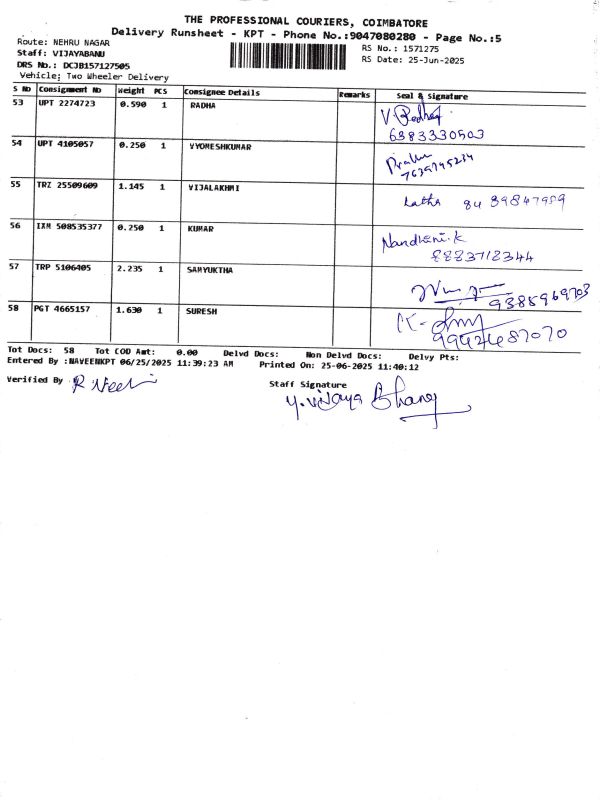 THE PROFESSIONAL COURIERS, COIMBATORE
Delivery Runsheet - KPT - Phone No.:9047080280 - Page No.:5
Route: NEHRU NAGAR
RS No.: 1571275
Staff: VIJAYABANU
RS Date: 25-Jun-2025
DRS No.: DCJB157127505
Vehicle; Two Wheeler Delivery
S No Consignment No Weight PCS Consignee Details Remarks Seal & Signature
53 UPT 2274723 0.590 1 RADHA
6383330503
54 UPT 4105057 0.250 1 VYOMESHKUMAR
55 TRZ 25509609 1.145 1 VIJALAKHMI Latha
56 IXM 508535377 0.250 1 KUMAR Nandhini.K
8883718344
57 TRP 5106405 2.235 1 SAMYUKTHA
9385969703
58 PGT 4665157 1.630 1 SURESH
Tot Docs: 58 Tot COD Amt: 0.00 Delvd Docs: Non Delvd Docs: Delvy Pts:
Entered By :NAVEENKPT 06/25/2025 11:39:23 AM Printed On: 25-06-2025 11:40:12
Verified By
Staff Signature
Y. Vijaya Bhanu